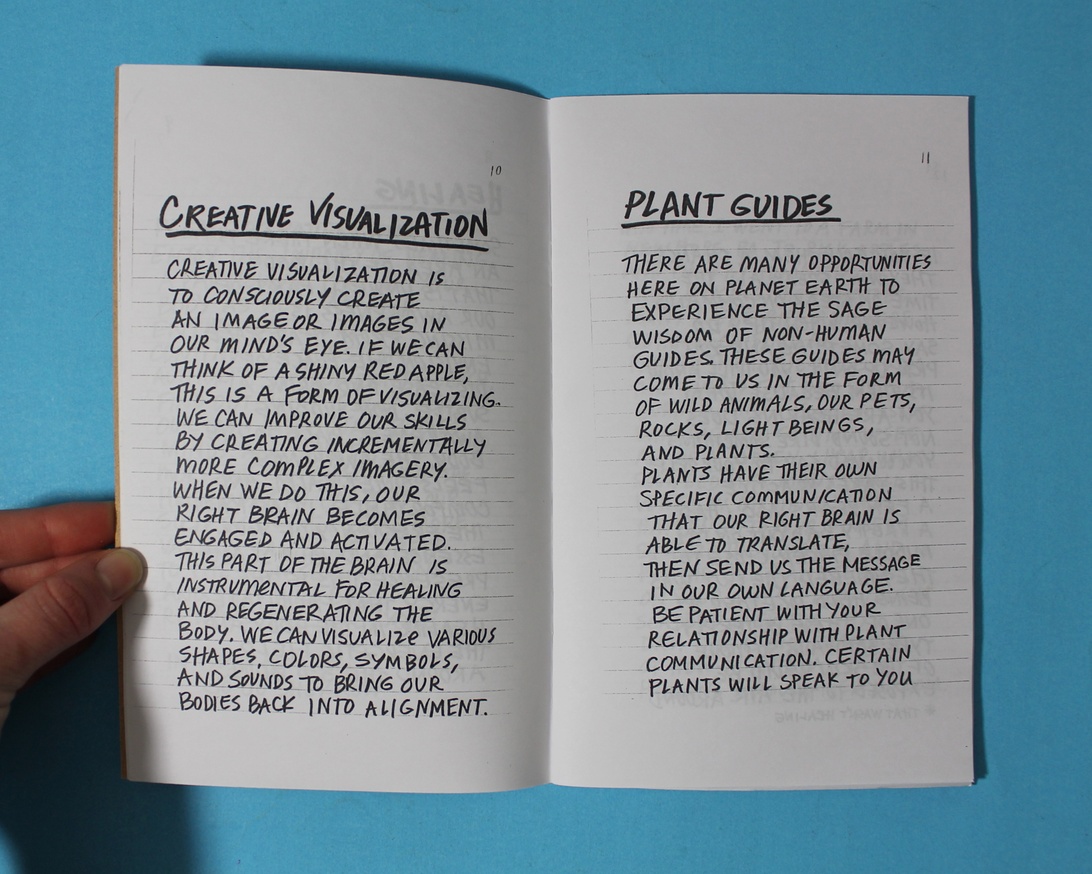 10
CREATIVE VISUALIZATION
CREATIVE VISUALIZATION IS
TO CONSCIOUSLY CREATE
AN IMAGE OR IMAGES IN
OUR MIND'S EYE. IF WE CAN
THINK OF A SHINY RED APPLE,
THIS IS A FORM OF VISUALIZING.
WE CAN IMPROVE OUR SKILLS
BY CREATING INCREMENTALLY
MORE COMPLEX IMAGERY.
WHEN WE DO THIS, OUR
RIGHT BRAIN BECOMES
ENGAGED AND ACTIVATED.
THIS PART OF THE BRAIN IS
INSTRUMENTAL FOR HEALING
AND REGENERATING THE
BODY. WE CAN VISUALIZE VARIOUS
SHAPES, COLORS, SYMBOLS,
AND SOUNDS TO BRING OUR
BODIES BACK INTO ALIGNMENT.
11
PLANT GUIDES
THERE ARE MANY OPPORTUNITIES
HERE ON PLANET EARTH TO
EXPERIENCE THE SAGE
WISDOM OF NON-HUMAN
GUIDES. THESE GUIDES MAY
COME TO US IN THE FORM
OF WILD ANIMALS, OUR PETS,
ROCKS, LIGHT BEINGS,
AND PLANTS.
PLANTS HAVE THEIR OWN
SPECIFIC COMMUNICATION
THAT OUR RIGHT BRAIN IS
ABLE TO TRANSLATE,
THEN SEND US THE MESSAGE
IN OUR OWN LANGUAGE.
BE PATIENT WITH YOUR
RELATIONSHIP WITH PLANT
COMMUNICATION. CERTAIN
PLANTS WILL SPEAK TO YOU